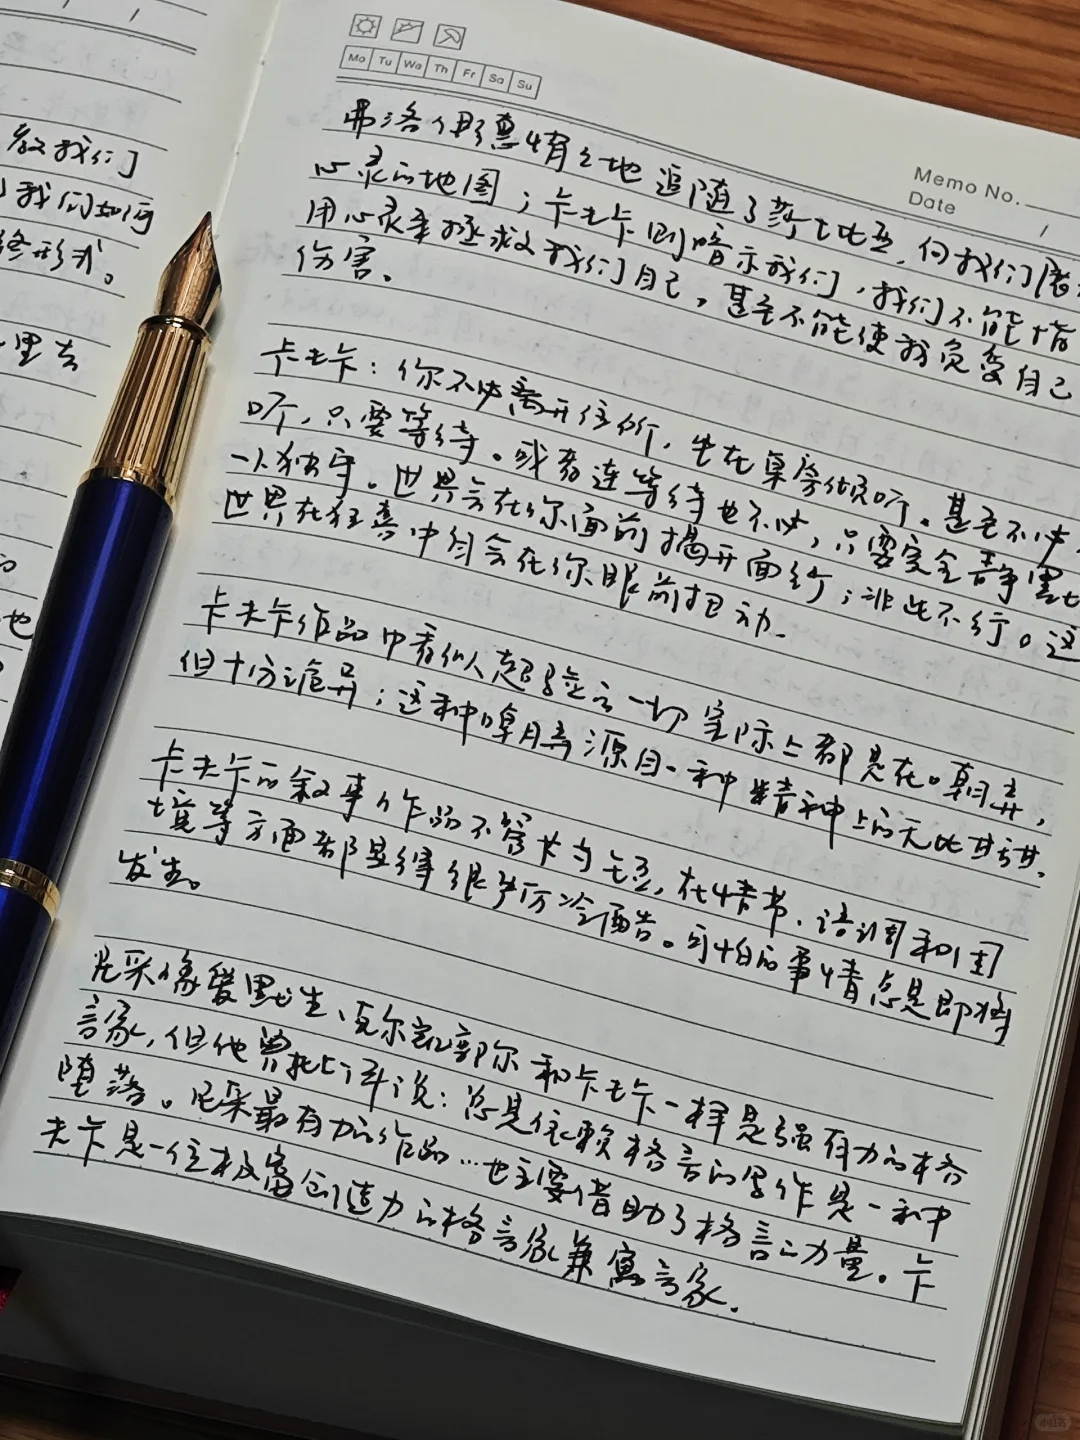 教我们
我们如何
终形式。
里去
也
Mo Tu We Th Fr Sa Su
Memo No.
Date
弗洛伊德情之地追随了莎士比亚,向我们展
心灵的地图;卡夫卡则暗示我们,我们不能指
用心灵来拯救我们自己,甚至不能使我免受自己
伤害。
卡夫卡:你不必离开住所,坐在桌旁倾听。甚至不必
听,只要等待。或者连等待也不必,只要完全静默
一人独守。世界会在你面前揭开面纱;非此不行。这
世界在狂喜中自会在你眼前扭动.
卡夫卡作品中看似人超验的一切实际上都是在嘲弄,
但十分诡异;这种嘲弄源自一种精神上的无比甘甜.
卡夫卡的叙事作品不管长与短,在情节、语调和困
境等方面都显得很严厉冷酷。可怕的事情总是即将
发生。
尼采像爱默生、克尔凯郭尔和卡夫卡一样是强有力的格
言家,但他曾批评说:总是依赖格言的写作是一种
堕落。尼采最有力的作品…也主要借助了格言的力量。卡
夫卡是一位极富创造力的格言家兼寓言家.